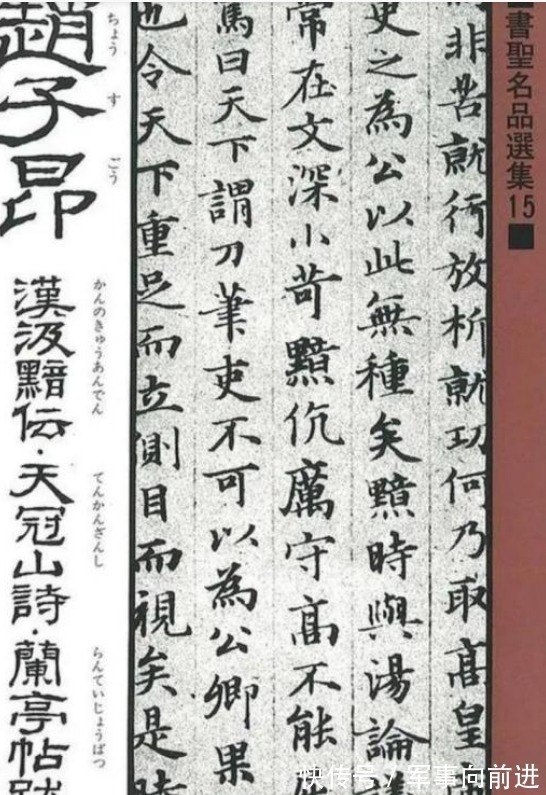 書聖名品選集15
非苦就行放析就功何乃取高皇
更之為公以此無種矣黯時與湯論
常在文深小苛黯伉厲守高不能
罵曰天下謂刀筆吏不可以為公卿果
也令天下重足而立側目而視矣是時
ちょう す ごう
趙子昂
かんのきゅうあんでん てんかんざんし らんていじょうばつ
漢汲黯伝・天冠山詩・蘭亭帖跋
快传号/军事向前进